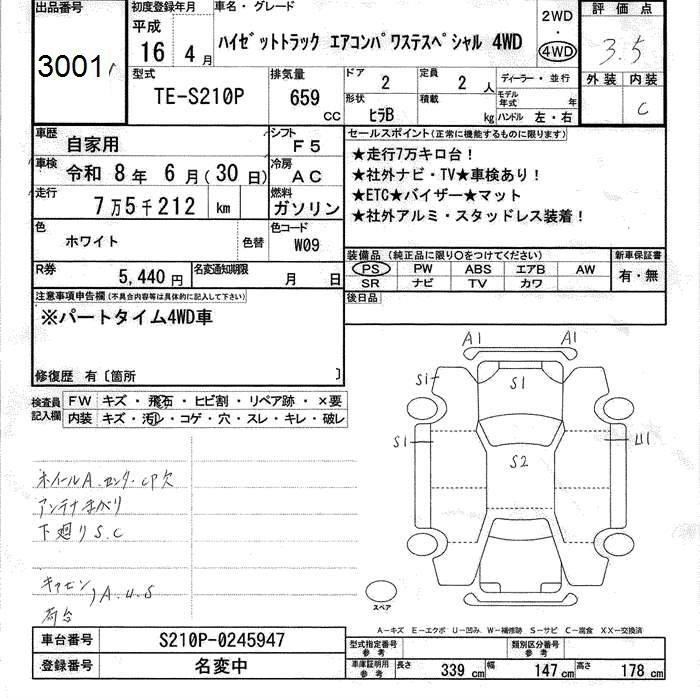 出品番号
3001
初度登録年月
平成
16 4 月
車名・グレード
ハイゼットトラック エアコンパワステスペシャル 4WD
2WD
・
4WD
評価点
3.5
外装 内装
C
型式
TE-S210P
排気量
659
CC
ドア
2
定員
2 人
ディーラー・並行
形状
ヒラB
積載
kg
モデル年式 年
ハンドル 左・右
車歴
自家用
シフト
F5
車検
令和 8 年 6 月(30 日)
冷房
AC
走行
7万5千212 km
燃料
ガソリン
色
ホワイト
色替
色コード
W09
R券
5,440 円
名変通知期限
月 日
セールスポイント(正常に機能するものに限ります)
★走行7万キロ台!
★社外ナビ・TV★車検あり!
★ETC★バイザー★マット
★社外アルミ・スタッドレス装着!
装備品 (純正品に限り○をつけてください)
PS PW ABS エアB AW
SR ナビ TV カワ
新車保証書
有・無
後日品
注意事項申告欄(不具合内容等は具体的に記入して下さい)
※パートタイム4WD車
修復歴 有〔箇所 〕
検査員記入欄
FW キズ・飛石・ヒビ割・リペア跡・×要
内装 キズ・汚レ・コゲ・穴・スレ・キレ・破レ
ホイールA.センターCP欠
アンテナまがり
下廻りS.C
キャビン
荷台
)A.U.S
A1 A1
S1 S1
S1 U1
S2
スペア
A-キズ E-エクボ U-凹み W-補修跡 S-サビ C-腐食 XX-交換済
車台番号
S210P-0245947
登録番号
名変中
型式指定番号
参考
類別区分番号
参考
車庫証明用
参考
長さ 339 cm 幅 147 cm 高さ 178 cm